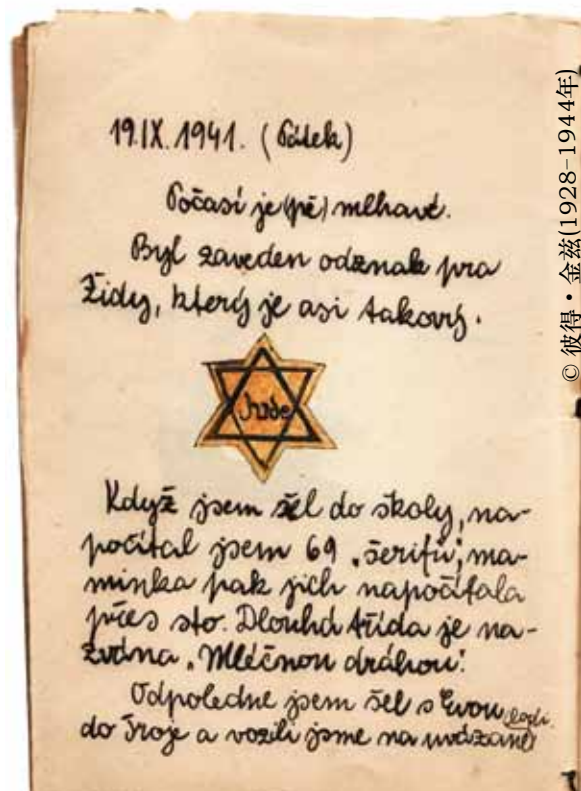 19.IX.1941. (Pátek)
Počasí je (pě) mlhavé.
Byl zaveden odznak pro
Židy, který je asi takový.
Jude
Když jsem šel do školy, na-
počítal jsem 69 „šerifů“, ma-
minka pak jich napočítala
přes sto. Dlouhá třída je na-
zvána „Mléčnou dráhou“.
Odpoledne jsem šel s Evou
do Troje a vozili jsme na uvázané
lodi.
© 彼得·金兹(1928-1944年)